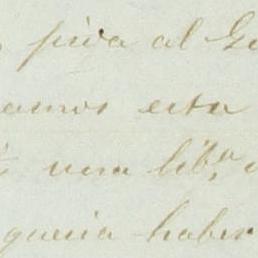 pida al Ge
amos esta
una lib.ª
queria haber